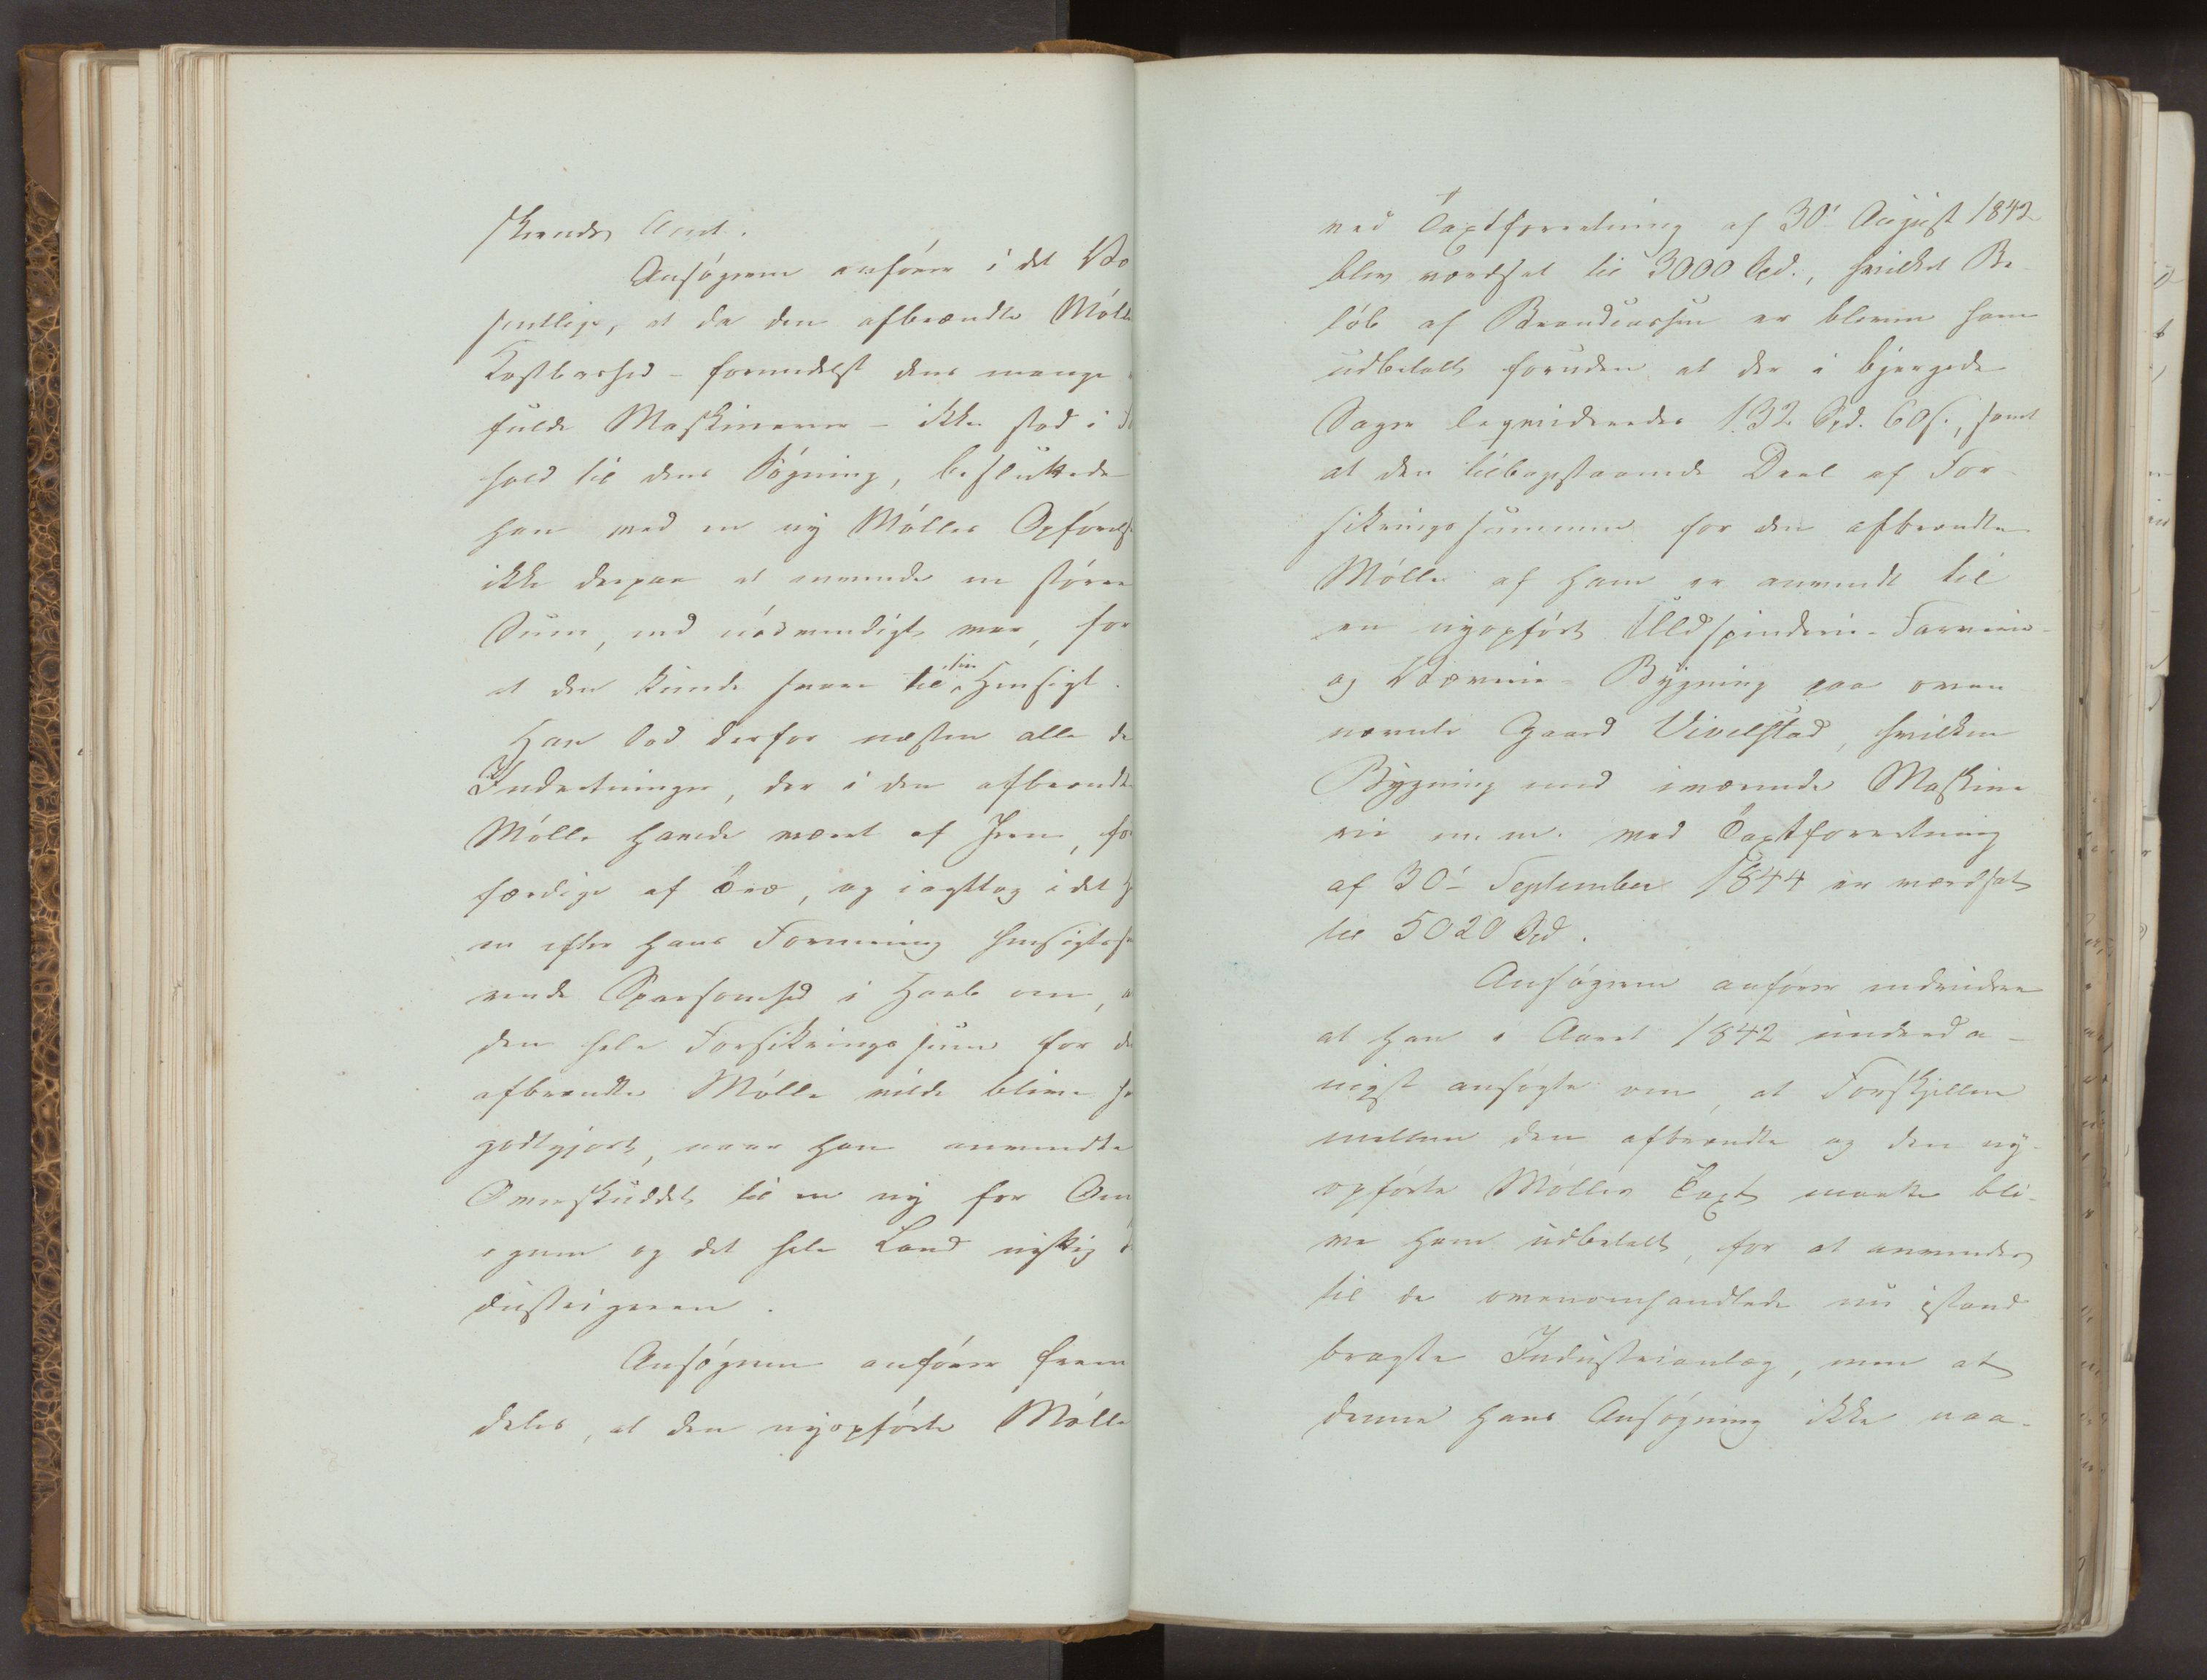 skeruds Amt.
Ansøgeren anfører i det Væ
sentlige, at da den afbrændte Mølle
Kostbarhed - formedelst dens mange
fulde Maskinerier - ikke stod i
hold til dens Søgning, besluttede
han ved en ny Mølles Opførelse
ikke derpaa at anvende en større
Sum, end nødvendigt var, for
at den kunde svare til sin Hensigt.
Han lod derfor næsten alle de
Indretninger, der i den afbrændte
Mølle havde været af Jern, for
færdige af Træ, og iagttog i det H
en efter hans Formening hensigtssva
rende Sparsomhed i Haab om,
den hele Forsikringssum for de
afbrændte Mølle vilde blive ha
godtgjort, naar han anvendte
Overskuddet til en ny for Om
egnen og det hele Land vigtig
dustrigreen.
Ansøgeren anfører frem
deles, at den nyopførte Mølle
ved Taxtforretning af 30' August 1842
blev værdsat til 3000 Spd., hvilket Be-
løb af Brandcassen er bleven ham
udbetalt foruden at der i bjergede
Sager leqvideredes 132 Spd. 60 s., samt
at den tilbagestaaende Deel af For-
sikringssummen for den afbrændte
Mølle af ham er anvendt til
en nyopført Uldspinderie- Farverie-
og Væverie- Bygning paa oven
nævnte Gaard Vivelstad, hvilken
Bygning med iværende Maskine
rie m.m. ved Taxtforretning
af 30' September 1844 er værdsat
til 5020 Spd.
Ansøgeren anfører endvidere
at han i Aaret 1842 underda-
nigst ansøgte om, at Forskjellen
mellem den afbrændte og den ny-
opførte Mølles Taxt maatte bli-
ve ham udbetalt, for at anvendes
til de ovenomhandlede nu istand
bragte Industrianlæg, men at
denne hans Ansøgning ikke naa-